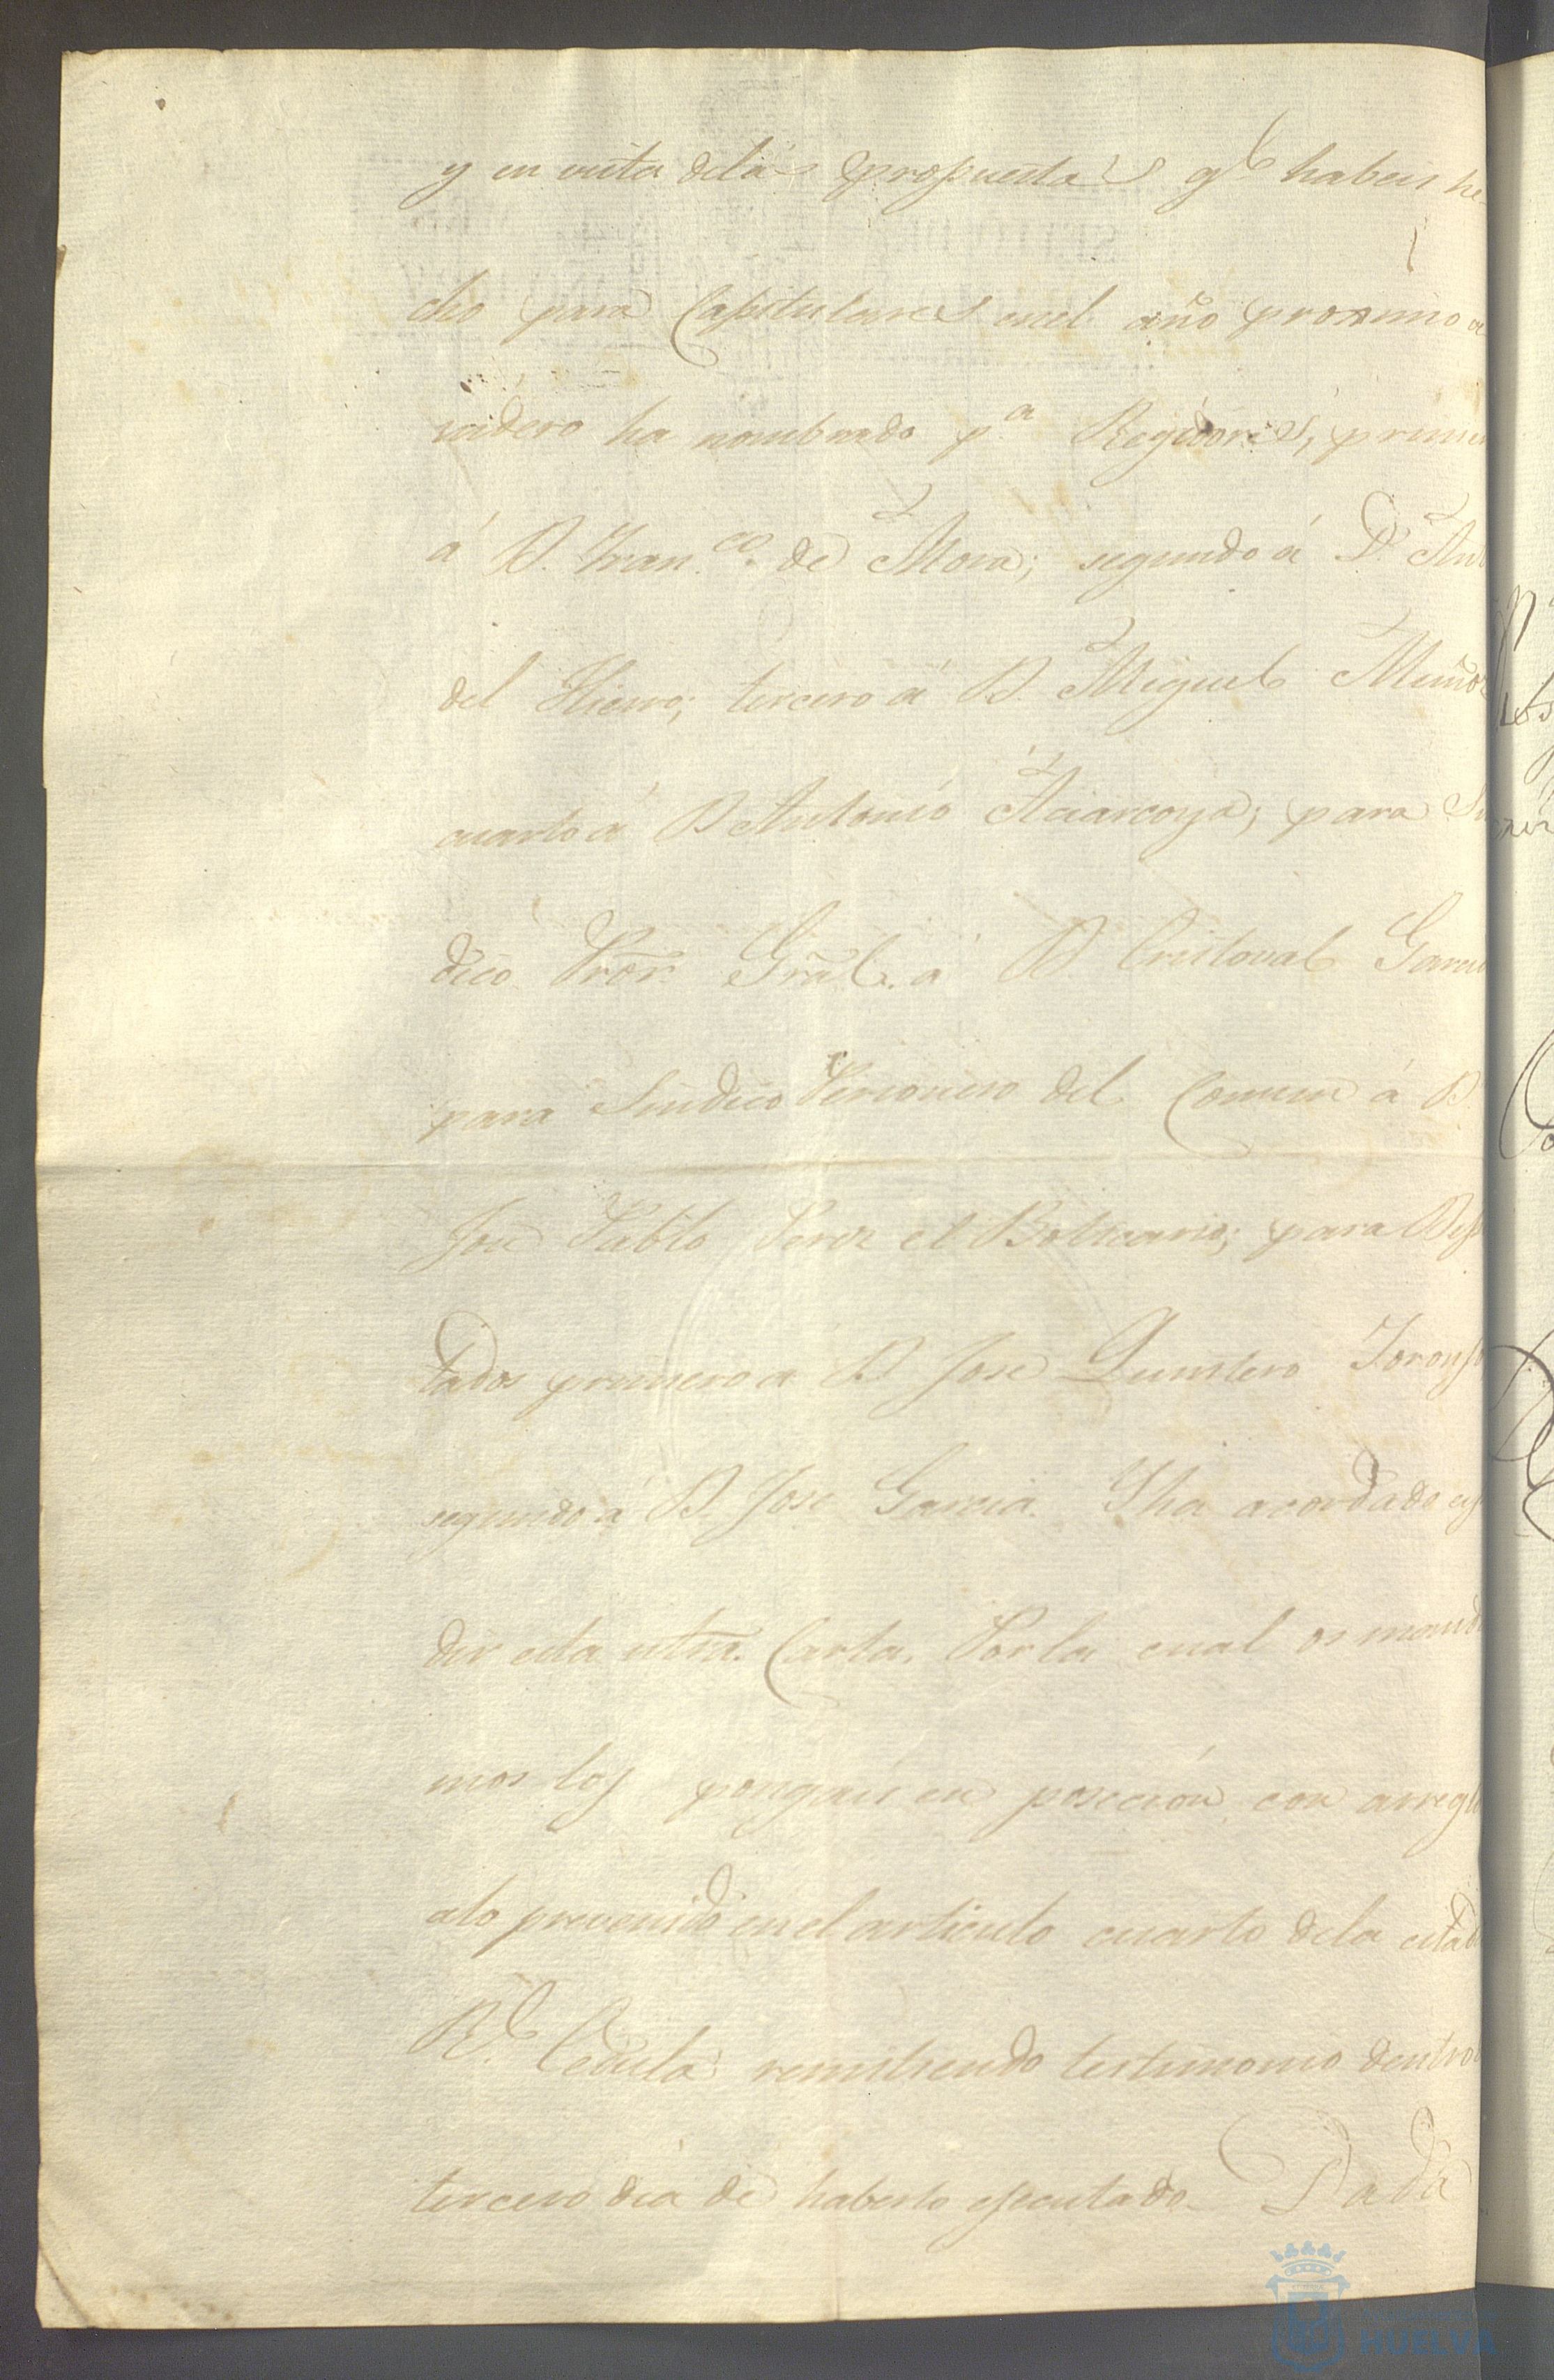 y en vista delas propuestas qe habeis he
cho para Capitulares enel año proximo a
nidero ha nombrado pa. Regidores, prime
á D. Fran.co de Mora; segundo á D. Ant
del Hierro; tercero á D. Miguel Muñoz
cuarto á D Antonio para Sin
dico Pror. Gral. á D. Cristoval Garcia
para Sindico Personero del Comun á D.
José Pablo Perez el Boticario; para Dipu
tados primero a D José Quintero
segundo a D. José Garcia. Y ha acordado esp
dir esta ntra. Carta. Por la cual os manda
mos los pongais en poseción con arreglo
alo prevenido enel articulo cuarto dela citad
Rl. Cedula remitiendo testimonio dentro
tercero dia de haberlo ejecutado. Dada
HUELVA